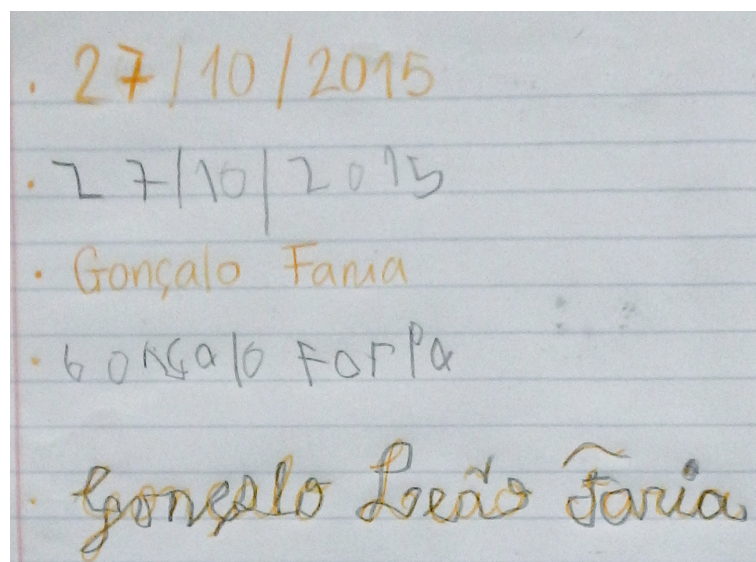 . 27/10/2015
. 27/10/2015
. Gonçalo Faria
. Gonçalo ForPa
. Gonçalo Leão Faria